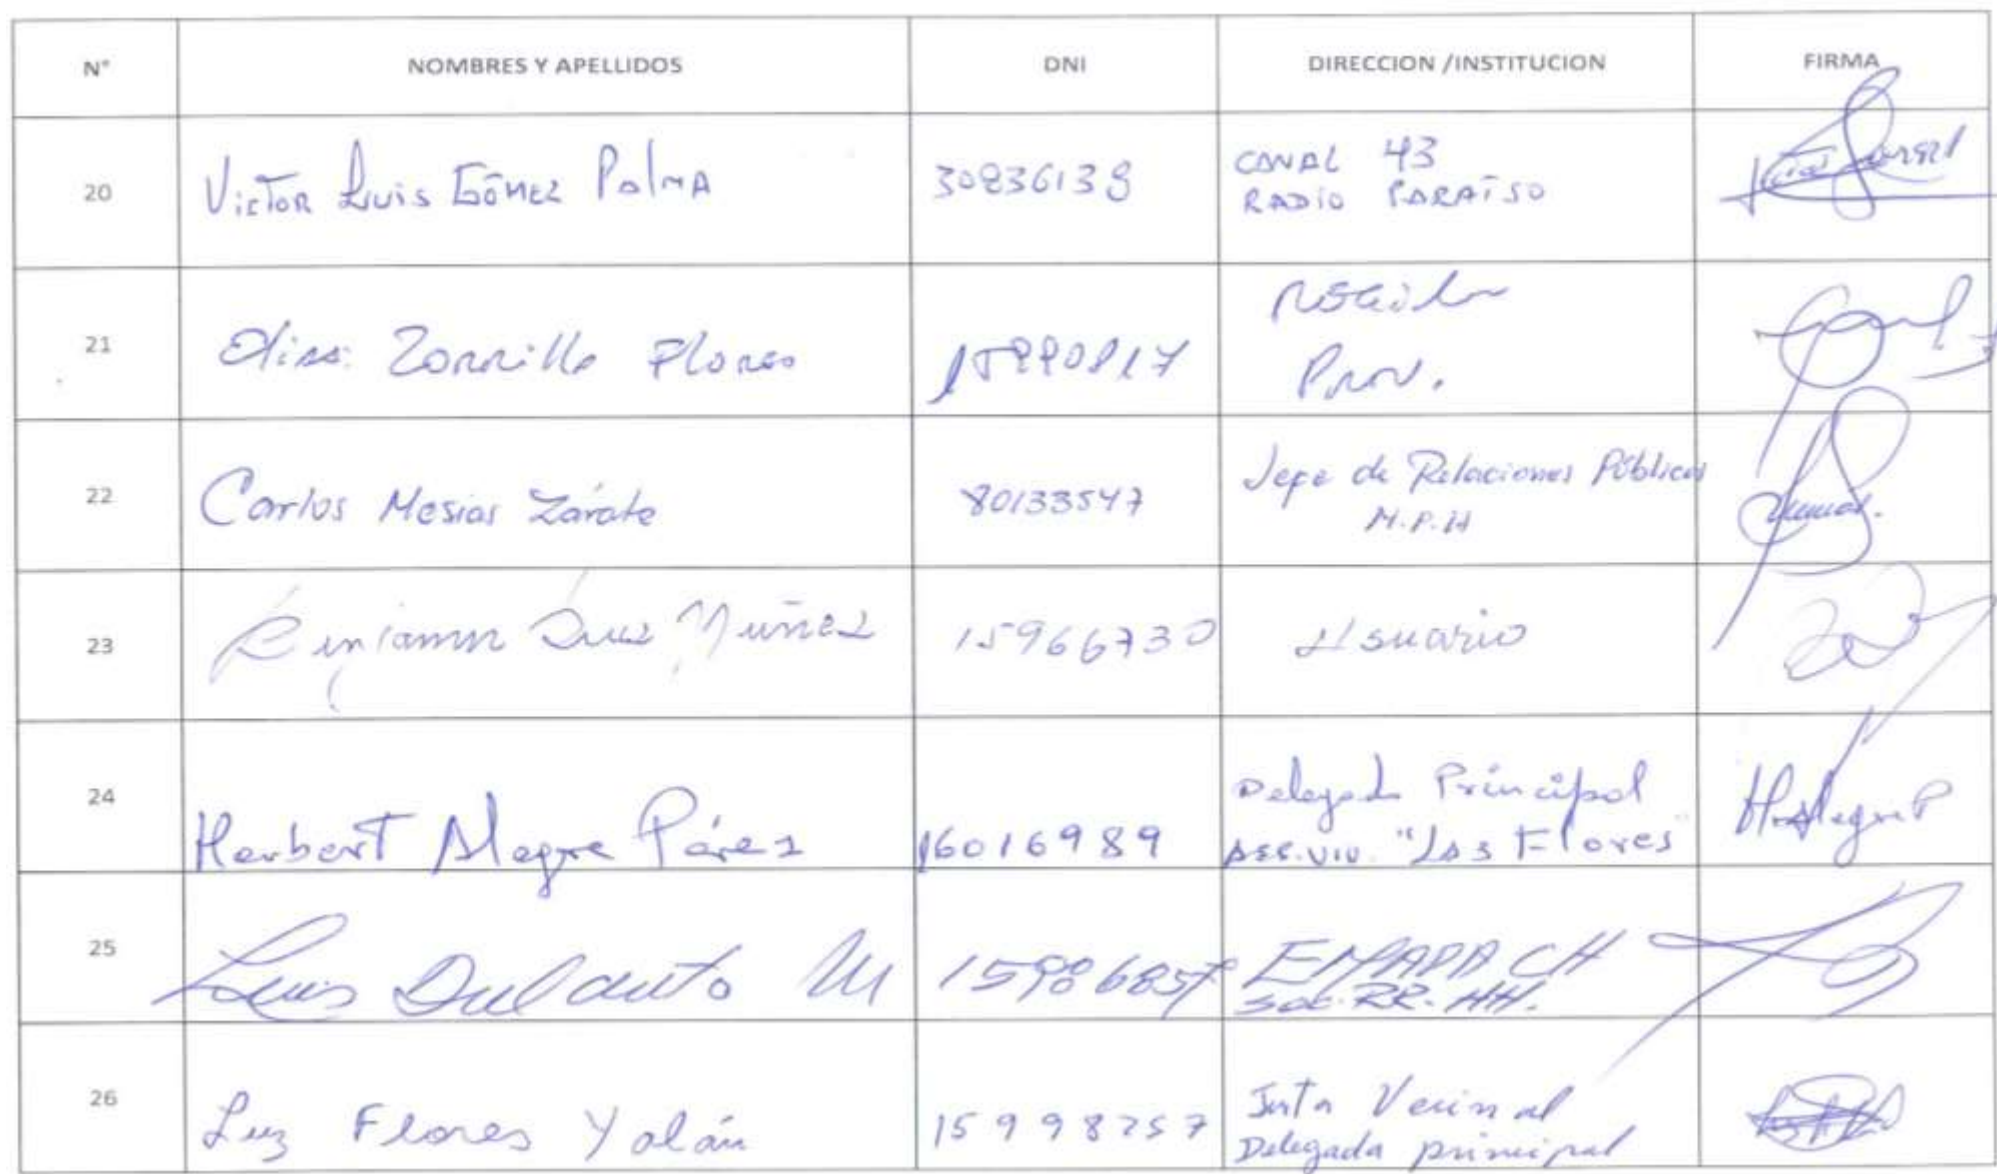 N° NOMBRES Y APELLIDOS DNI DIRECCION /INSTITUCION FIRMA
20 Victor Luis Gómez Palma 30836138 CANAL 43
RADIO PARAÍSO
21 Elias Zorrilla Flores
Prov.
22 Carlos Mesias Zárate 80133547 Jefe de Relaciones Públicas
M.P.H
23 Benjamin Núñez 15966730 Usuario
24 Herbert Alegre Pérez 16016989 Delegado Principal
ASC.VIV. "Las Flores"
25 Luis Dulanto M 15986857 EMAPA CH
RR.HH.
26 Luz Flores Yalán 15998257 Junta Vecinal
Delegada principal